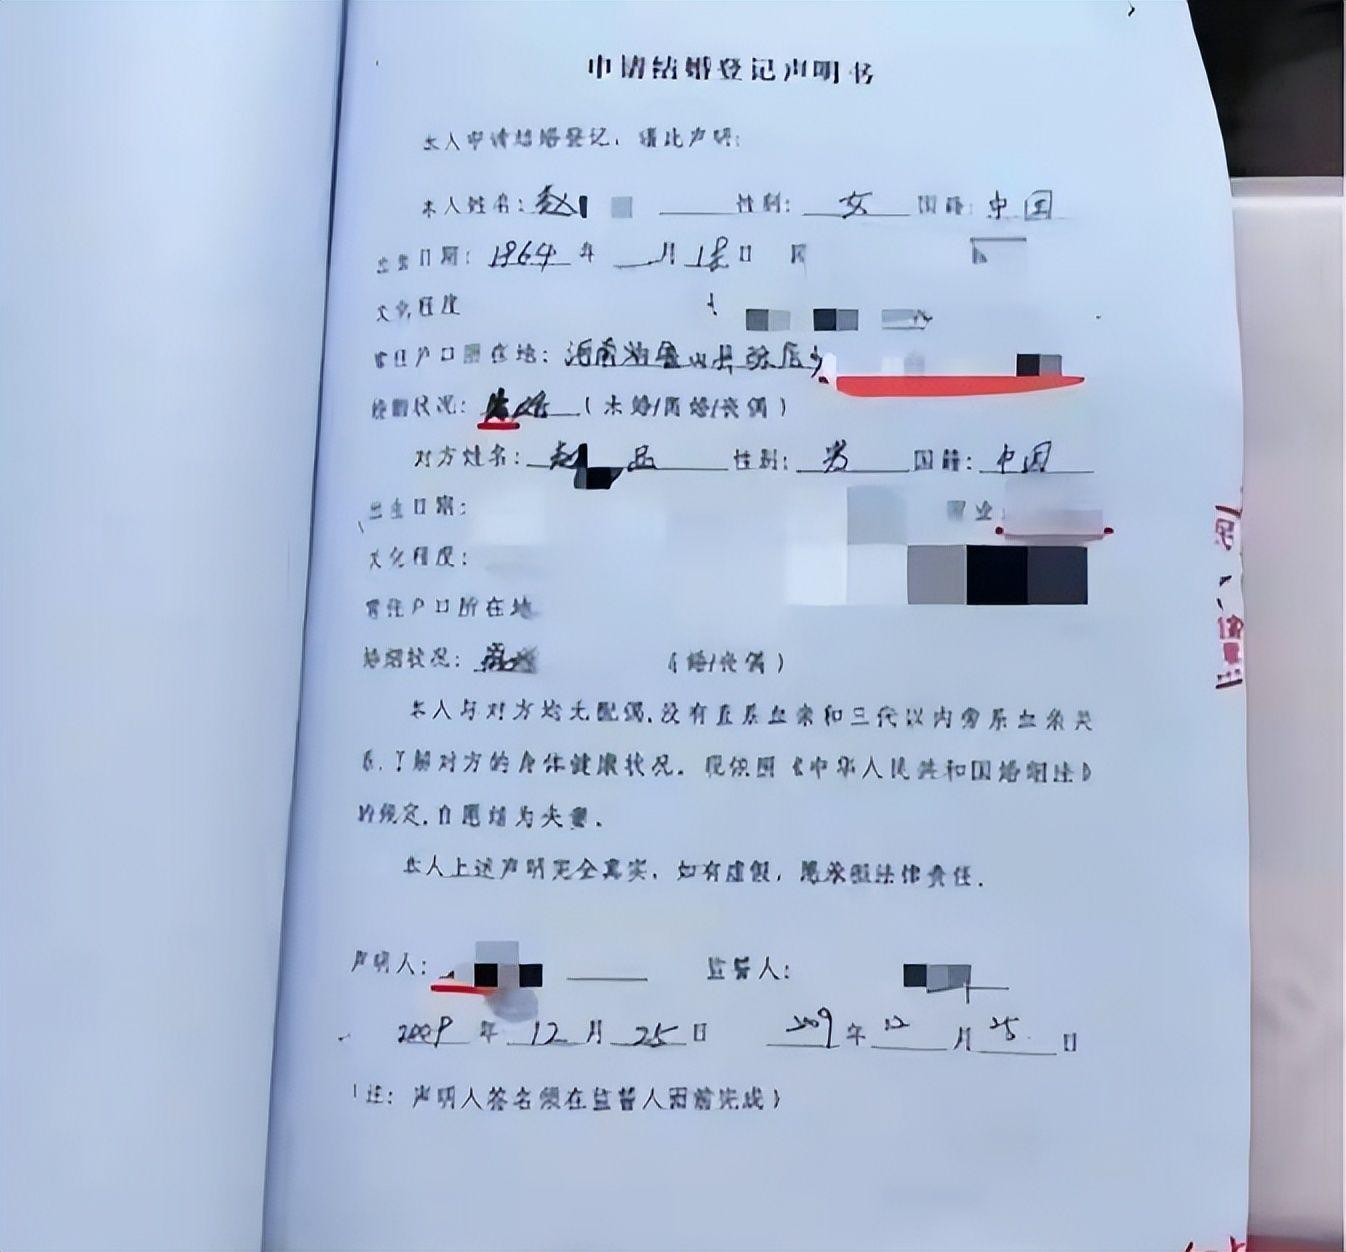 申请结婚登记声明书
本人申请结婚登记，谨此声明：
本人姓名：赵 性别：女 国籍：中国
出生日期：1964年 月18日
文化程度
常住户口所在地：河南省鲁山县张店乡
婚姻状况：（未婚/离婚/丧偶）
对方姓名：赵 性别：男 国籍：中国
出生日期： 职业：
文化程度：
常住户口所在地
婚姻状况： （婚/丧偶）
本人与对方均无配偶，没有直系血亲和三代以内旁系血亲关
系，了解对方的身体健康状况。现依照《中华人民共和国婚姻法》
的规定，自愿结为夫妻。
本人上述声明完全真实，如有虚假，愿承担法律责任。
声明人： 监督人：
2009年12月25日 2009年12月25日
（注：声明人签名须在监督人面前完成）
民